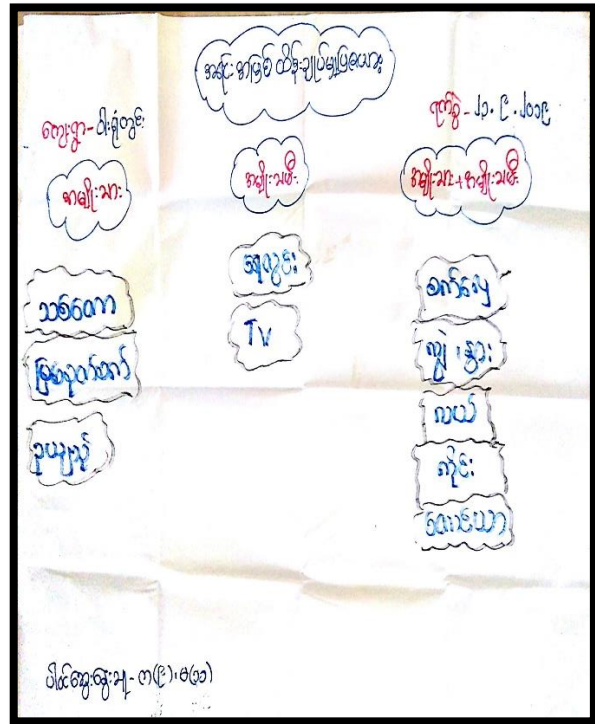 အရင်းအမြစ် ထိန်းချုပ်မှုပြဇယား
ကျေးရွာ - ဝါးရုံတွင်း
ရက်စွဲ - ၂၁.၉.၂၀၁၉
အမျိုးသား
အမျိုးသမီး
အမျိုးသား + အမျိုးသမီး
သစ်တော
မြက်ခုတ်စက်
ဥယျာဉ်
ရေတွင်း
TV
စက်လှေ
ကျွဲ၊ နွား
လယ်
ကိုင်း
တောင်ယာ
ပါဝင်ဆွေးနွေးသူ - ကျား(၉)၊ မ(၁၁)